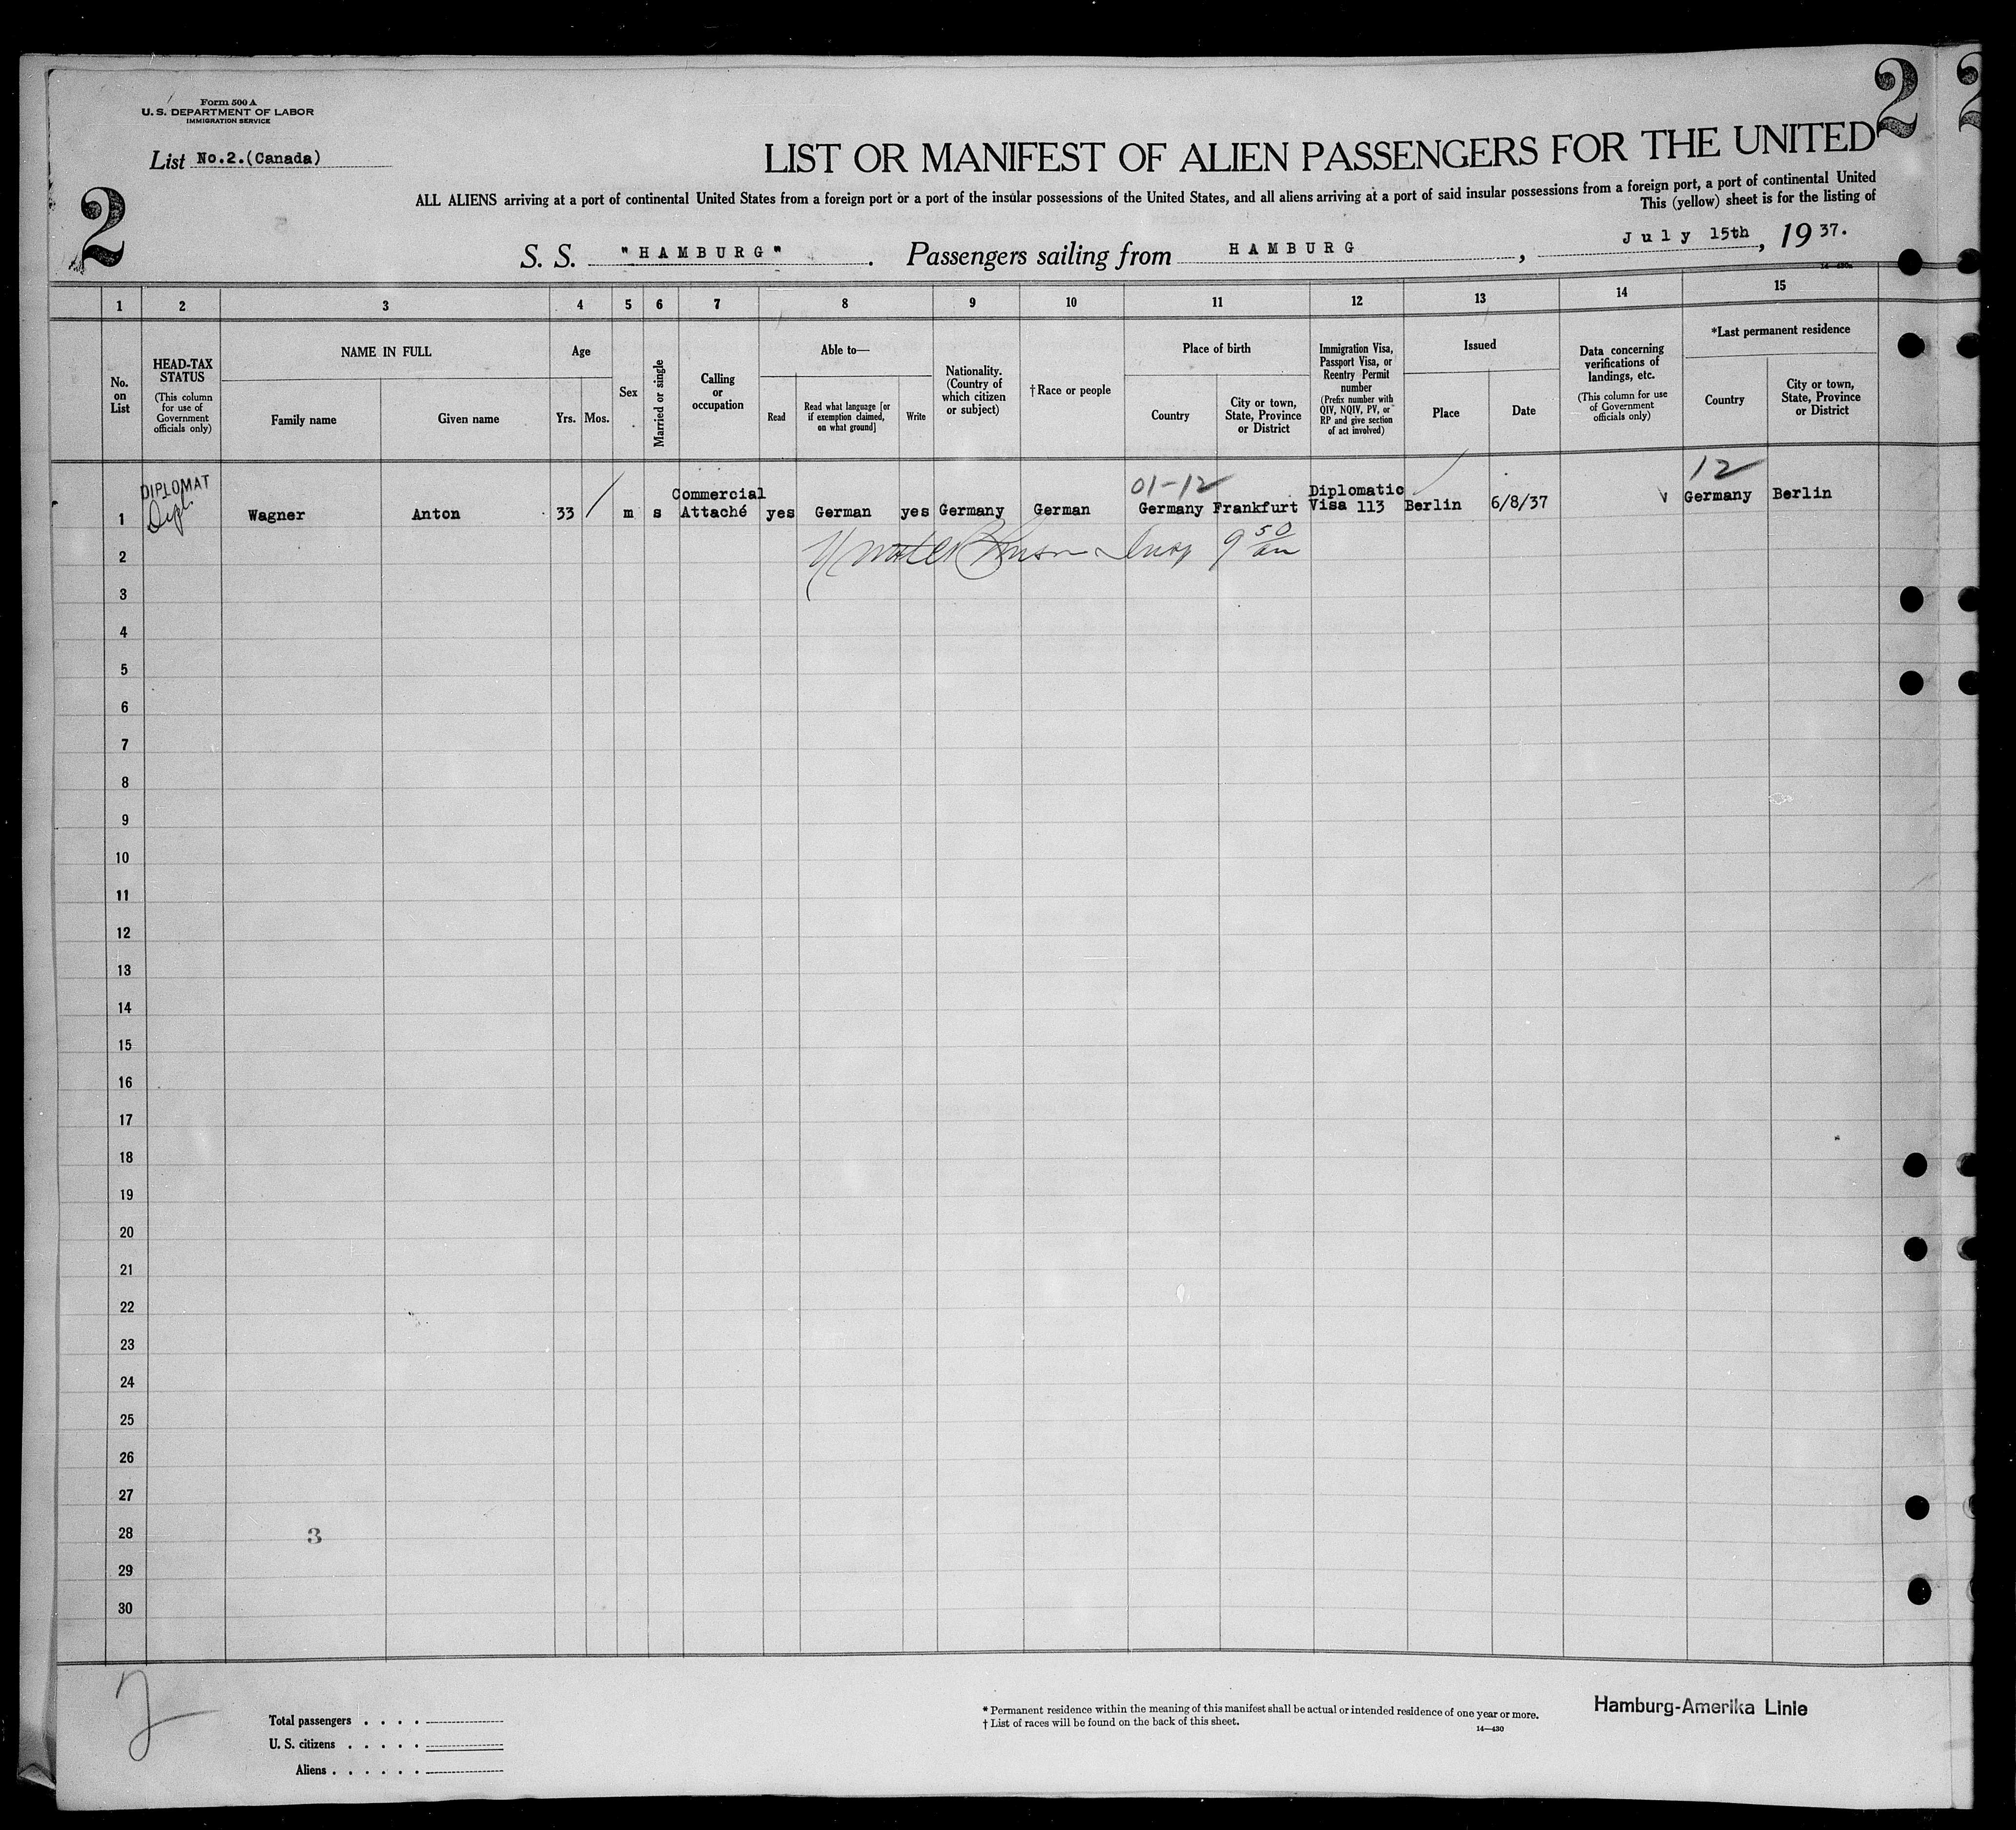 Form 500 A
U. S. DEPARTMENT OF LABOR
IMMIGRATION SERVICE
List No.2.(Canada)
2
2
LIST OR MANIFEST OF ALIEN PASSENGERS FOR THE UNITED
ALL ALIENS arriving at a port of continental United States from a foreign port or a port of the insular possessions of the United States, and all aliens arriving at a port of said insular possessions from a foreign port, a port of continental United
This (yellow) sheet is for the listing of
S. S. "HAMBURG". Passengers sailing from HAMBURG, July 15th, 1937.
1 2 3 4 5 6 7 8 9 10 11 12 13 14 15
No. on List
HEAD-TAX STATUS
(This column for use of Government officials only)
NAME IN FULL
Family name
Given name
Age
Yrs.
Mos.
Sex
Married or single
Calling or occupation
Able to—
Read
Read what language [or if exemption claimed, on what ground]
Write
Nationality. (Country of which citizen or subject)
†Race or people
Place of birth
Country
City or town, State, Province or District
Immigration Visa, Passport Visa, or Reentry Permit number
(Prefix number with QIV, NQIV, PV, or RP and give section of act involved)
Issued
Place
Date
Data concerning verifications of landings, etc.
(This column for use of Government officials only)
*Last permanent residence
Country
City or town, State, Province or District
DIPLOMAT
Dipl.
01-12
12
1 Wagner Anton 33 m s Commercial Attaché yes German yes Germany German Germany Frankfurt Diplomatic Visa 113 Berlin 6/8/37 Germany Berlin
2
3
4
5
6
7
8
9
10
11
12
13
14
15
16
17
18
19
20
21
22
23
24
25
26
27
28 3
29
30
2
Total passengers . . . .
U. S. citizens . . . . .
Aliens . . . . . .
* Permanent residence within the meaning of this manifest shall be actual or intended residence of one year or more.
† List of races will be found on the back of this sheet.
14—430
Hamburg-Amerika Linie